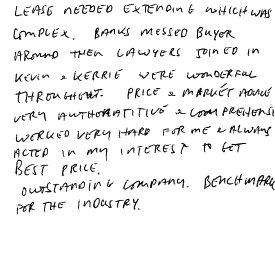 LEASE NEEDED EXTENDING WHICH WAS
COMPLEX. BANKS MESSED BUYER
AROUND THEN LAWYERS JOINED IN
KEVIN & KERRIE WERE WONDERFUL
THROUGHOUT. PRICE & MARKET
VERY AUTHORATITIVE & COMPREHENSI
WORKED VERY HARD FOR ME & ALWAYS
ACTED IN MY INTEREST TO GET
BEST PRICE.
OUTSTANDING COMPANY. BENCHMARK
FOR THE INDUSTRY.